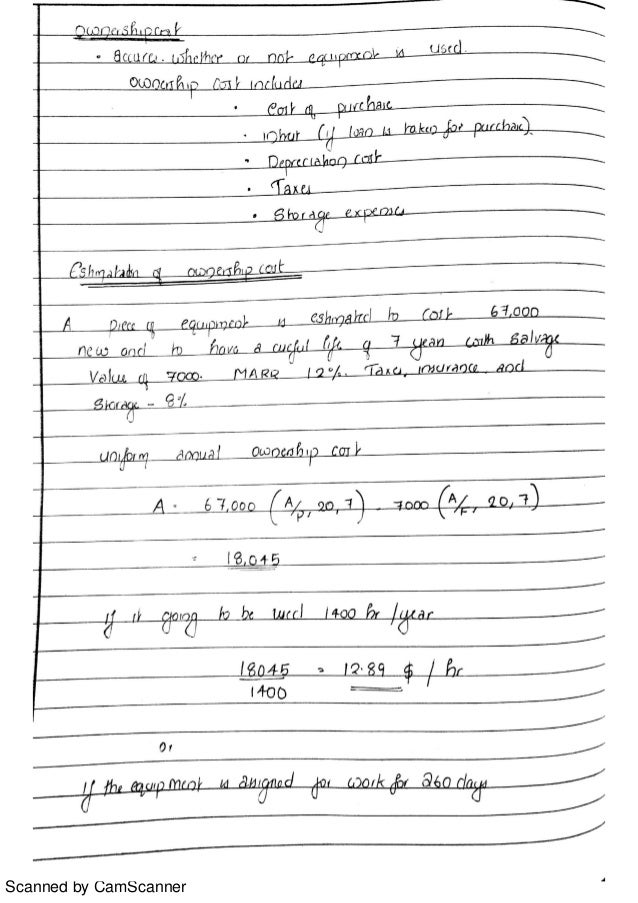 Ownership cost
• accures whether or not equipment is used.
Ownership cost includes
• Cost of purchase
• Intrest (if loan is taken for purchase)
• Depreciation cost
• Taxes
• Storage expenses
Estimation of ownership cost
A piece of equipment is estimated to cost 67,000
new and to have a useful life of 7 years with salvage
value of 7000. MARR 12%. Taxes, insurance and
storage - 8%
uniform annual ownership cost
A = 67,000 (A/P, 20, 7) - 7000 (A/F, 20, 7)
= 18,045
if it going to be used 1400 hr /year
18045 = 12.89 $ / hr
1400
or
if the equipment is assigned for work for 260 days
Scanned by CamScanner